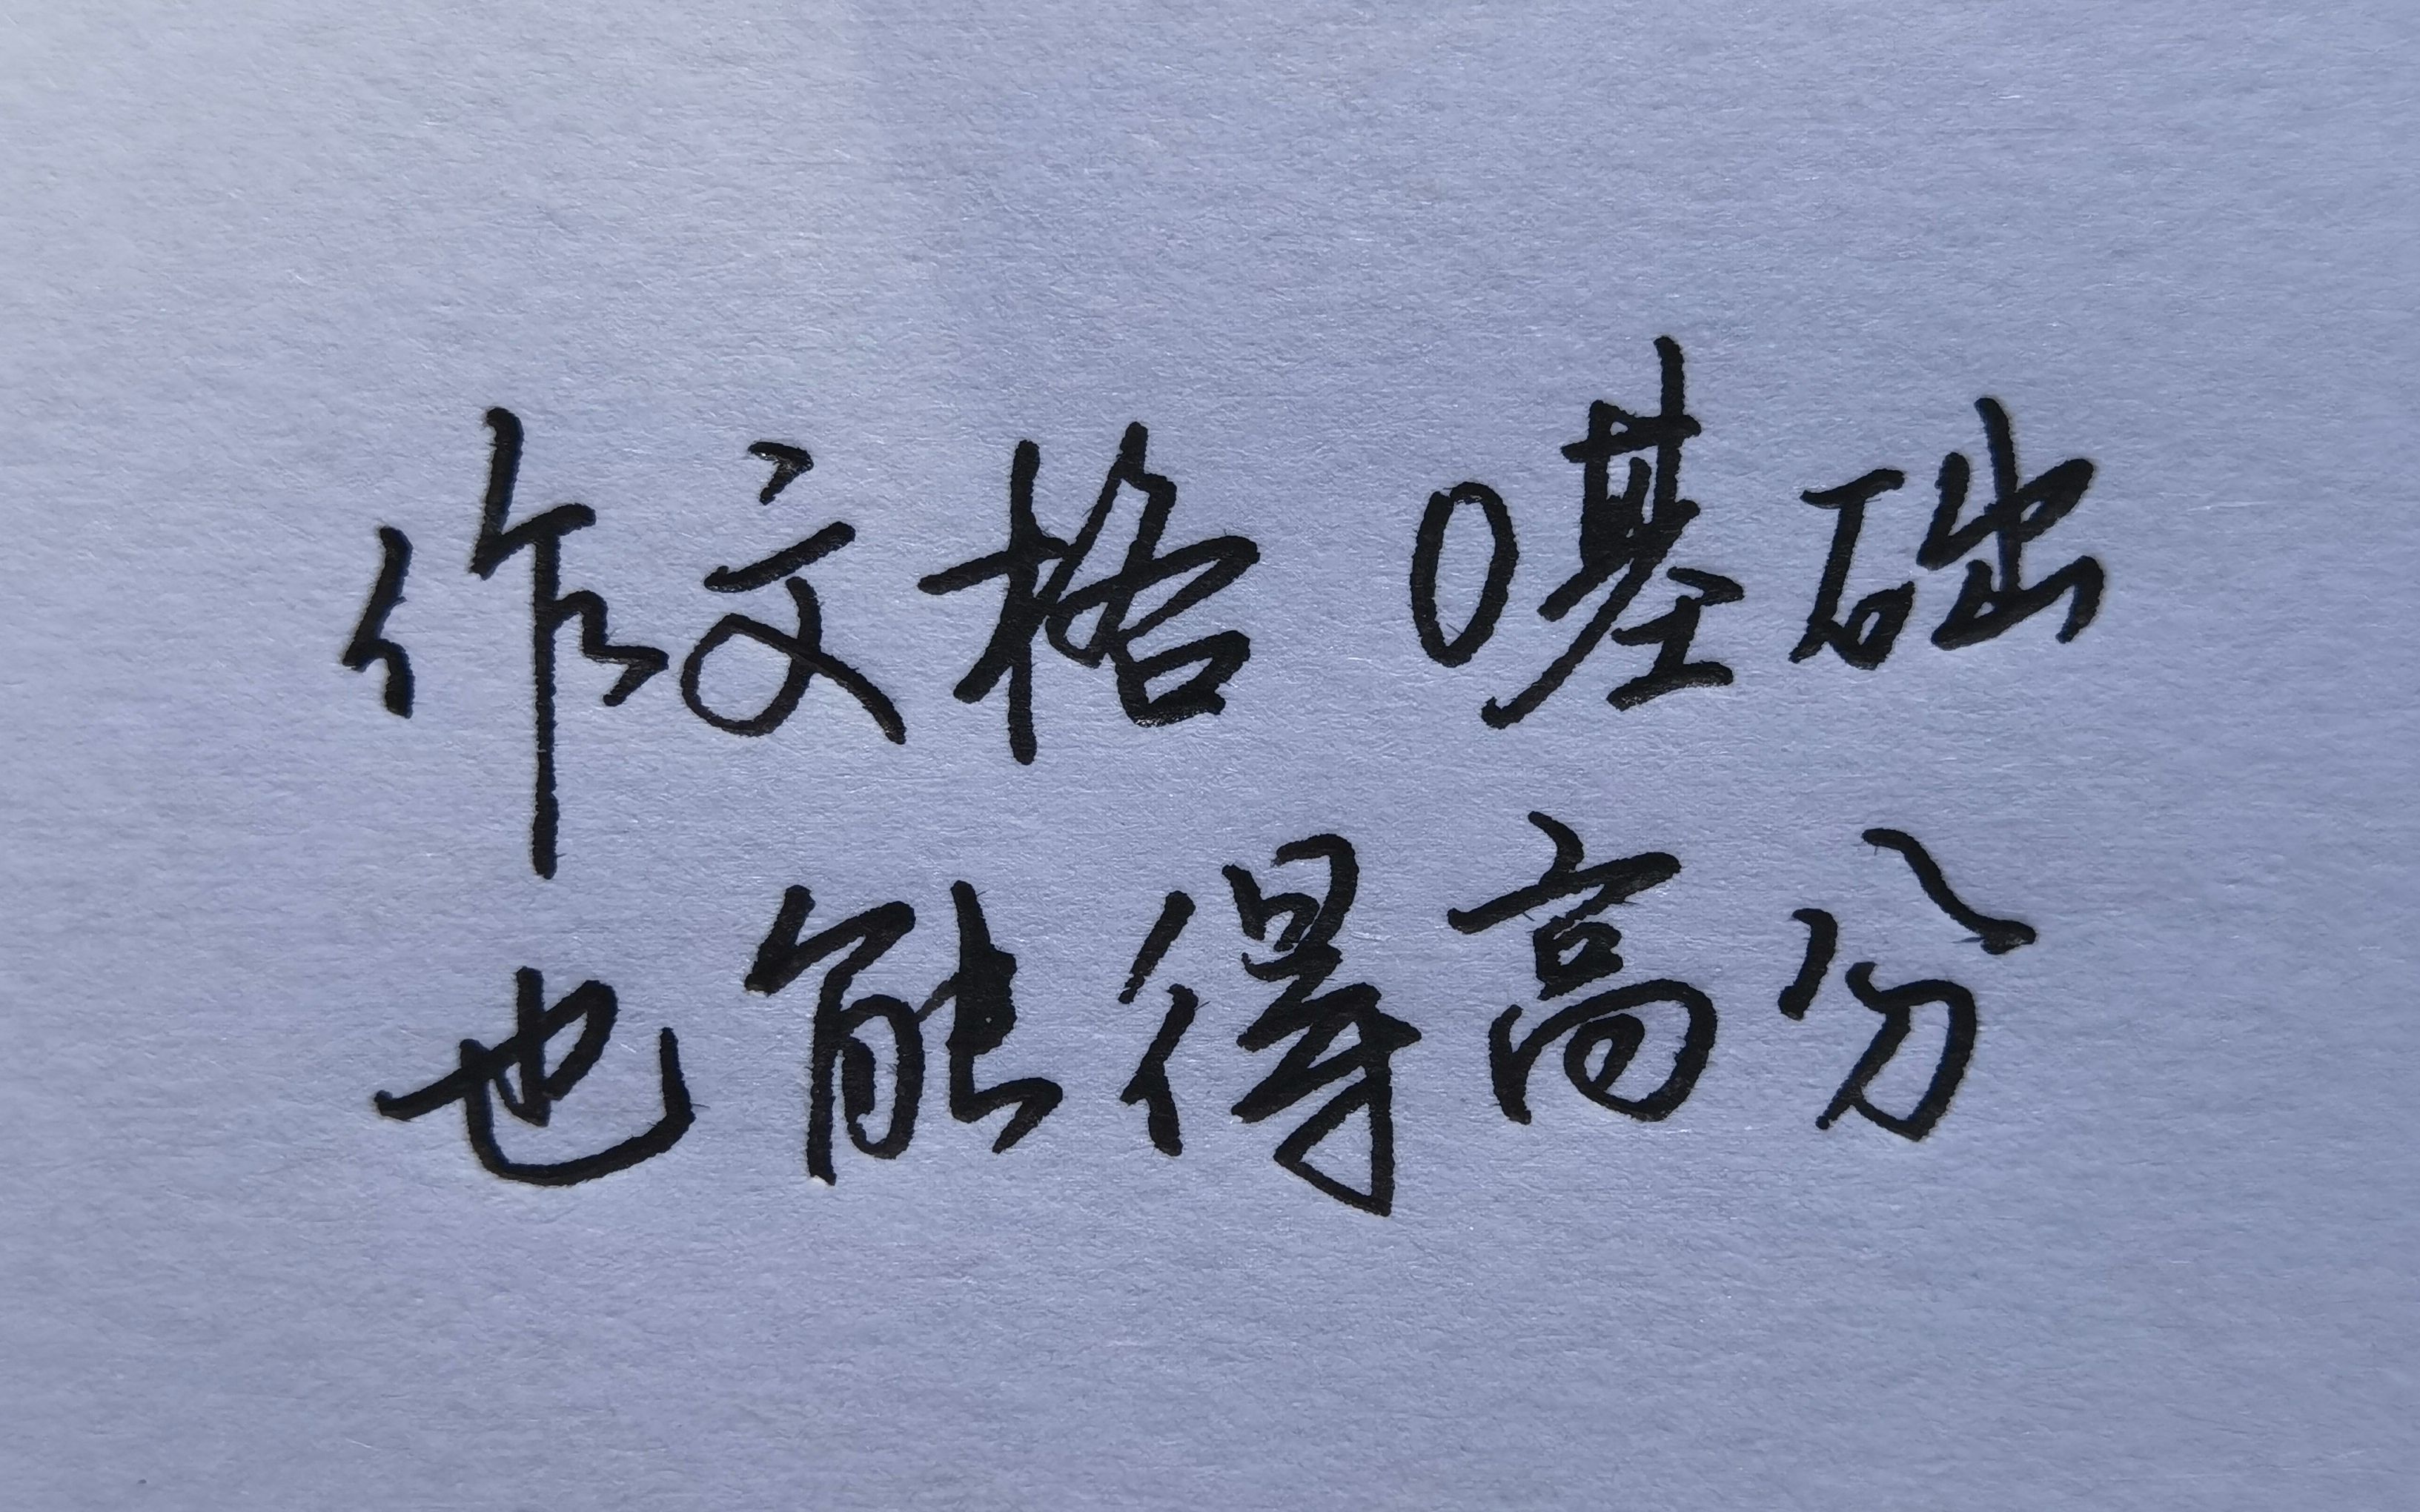 作文格 0基础
也能得高分